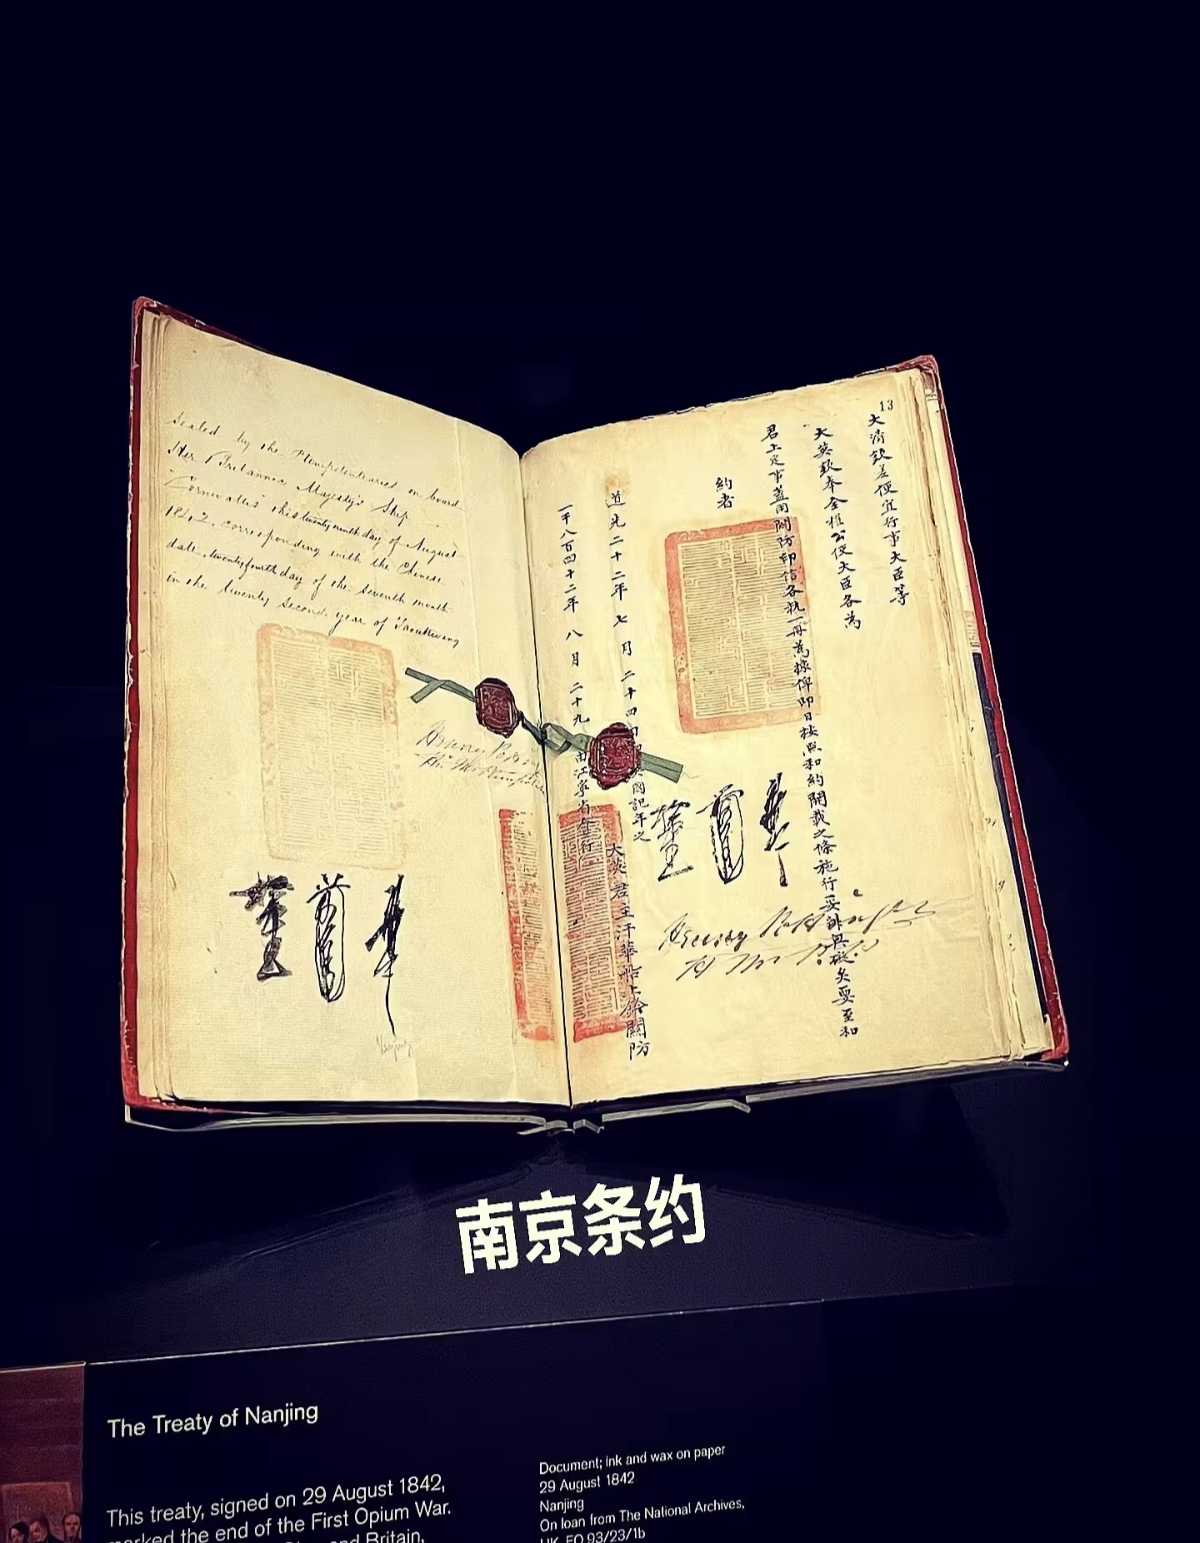 Sealed by the Plenipotentiaries on board
Her Britannic Majesty's Ship
Cornwallis this twenty ninth day of August
1842, corresponding with the Chinese
date, twenty fourth day of the seventh month
in the twenty second year of Taoukwang
13
大清欽差便宜行事大臣等
大英欽奉全權公使大臣各為
君上定事蓋用關防印信各執一冊為據俾即日按照和約開載之條施行妥辦無礙矣要至和
約者
道光二十二年七月二十四日即英國記年之
一千八百四十二年八月二十九日由江寧省會行
大英君主汗華船上鈐關防
南京条约
The Treaty of Nanjing
This treaty, signed on 29 August 1842,
marked the end of the First Opium War.
and Britain,
Document; ink and wax on paper
29 August 1842
Nanjing
On loan from The National Archives,
UK, FO 93/23/1b